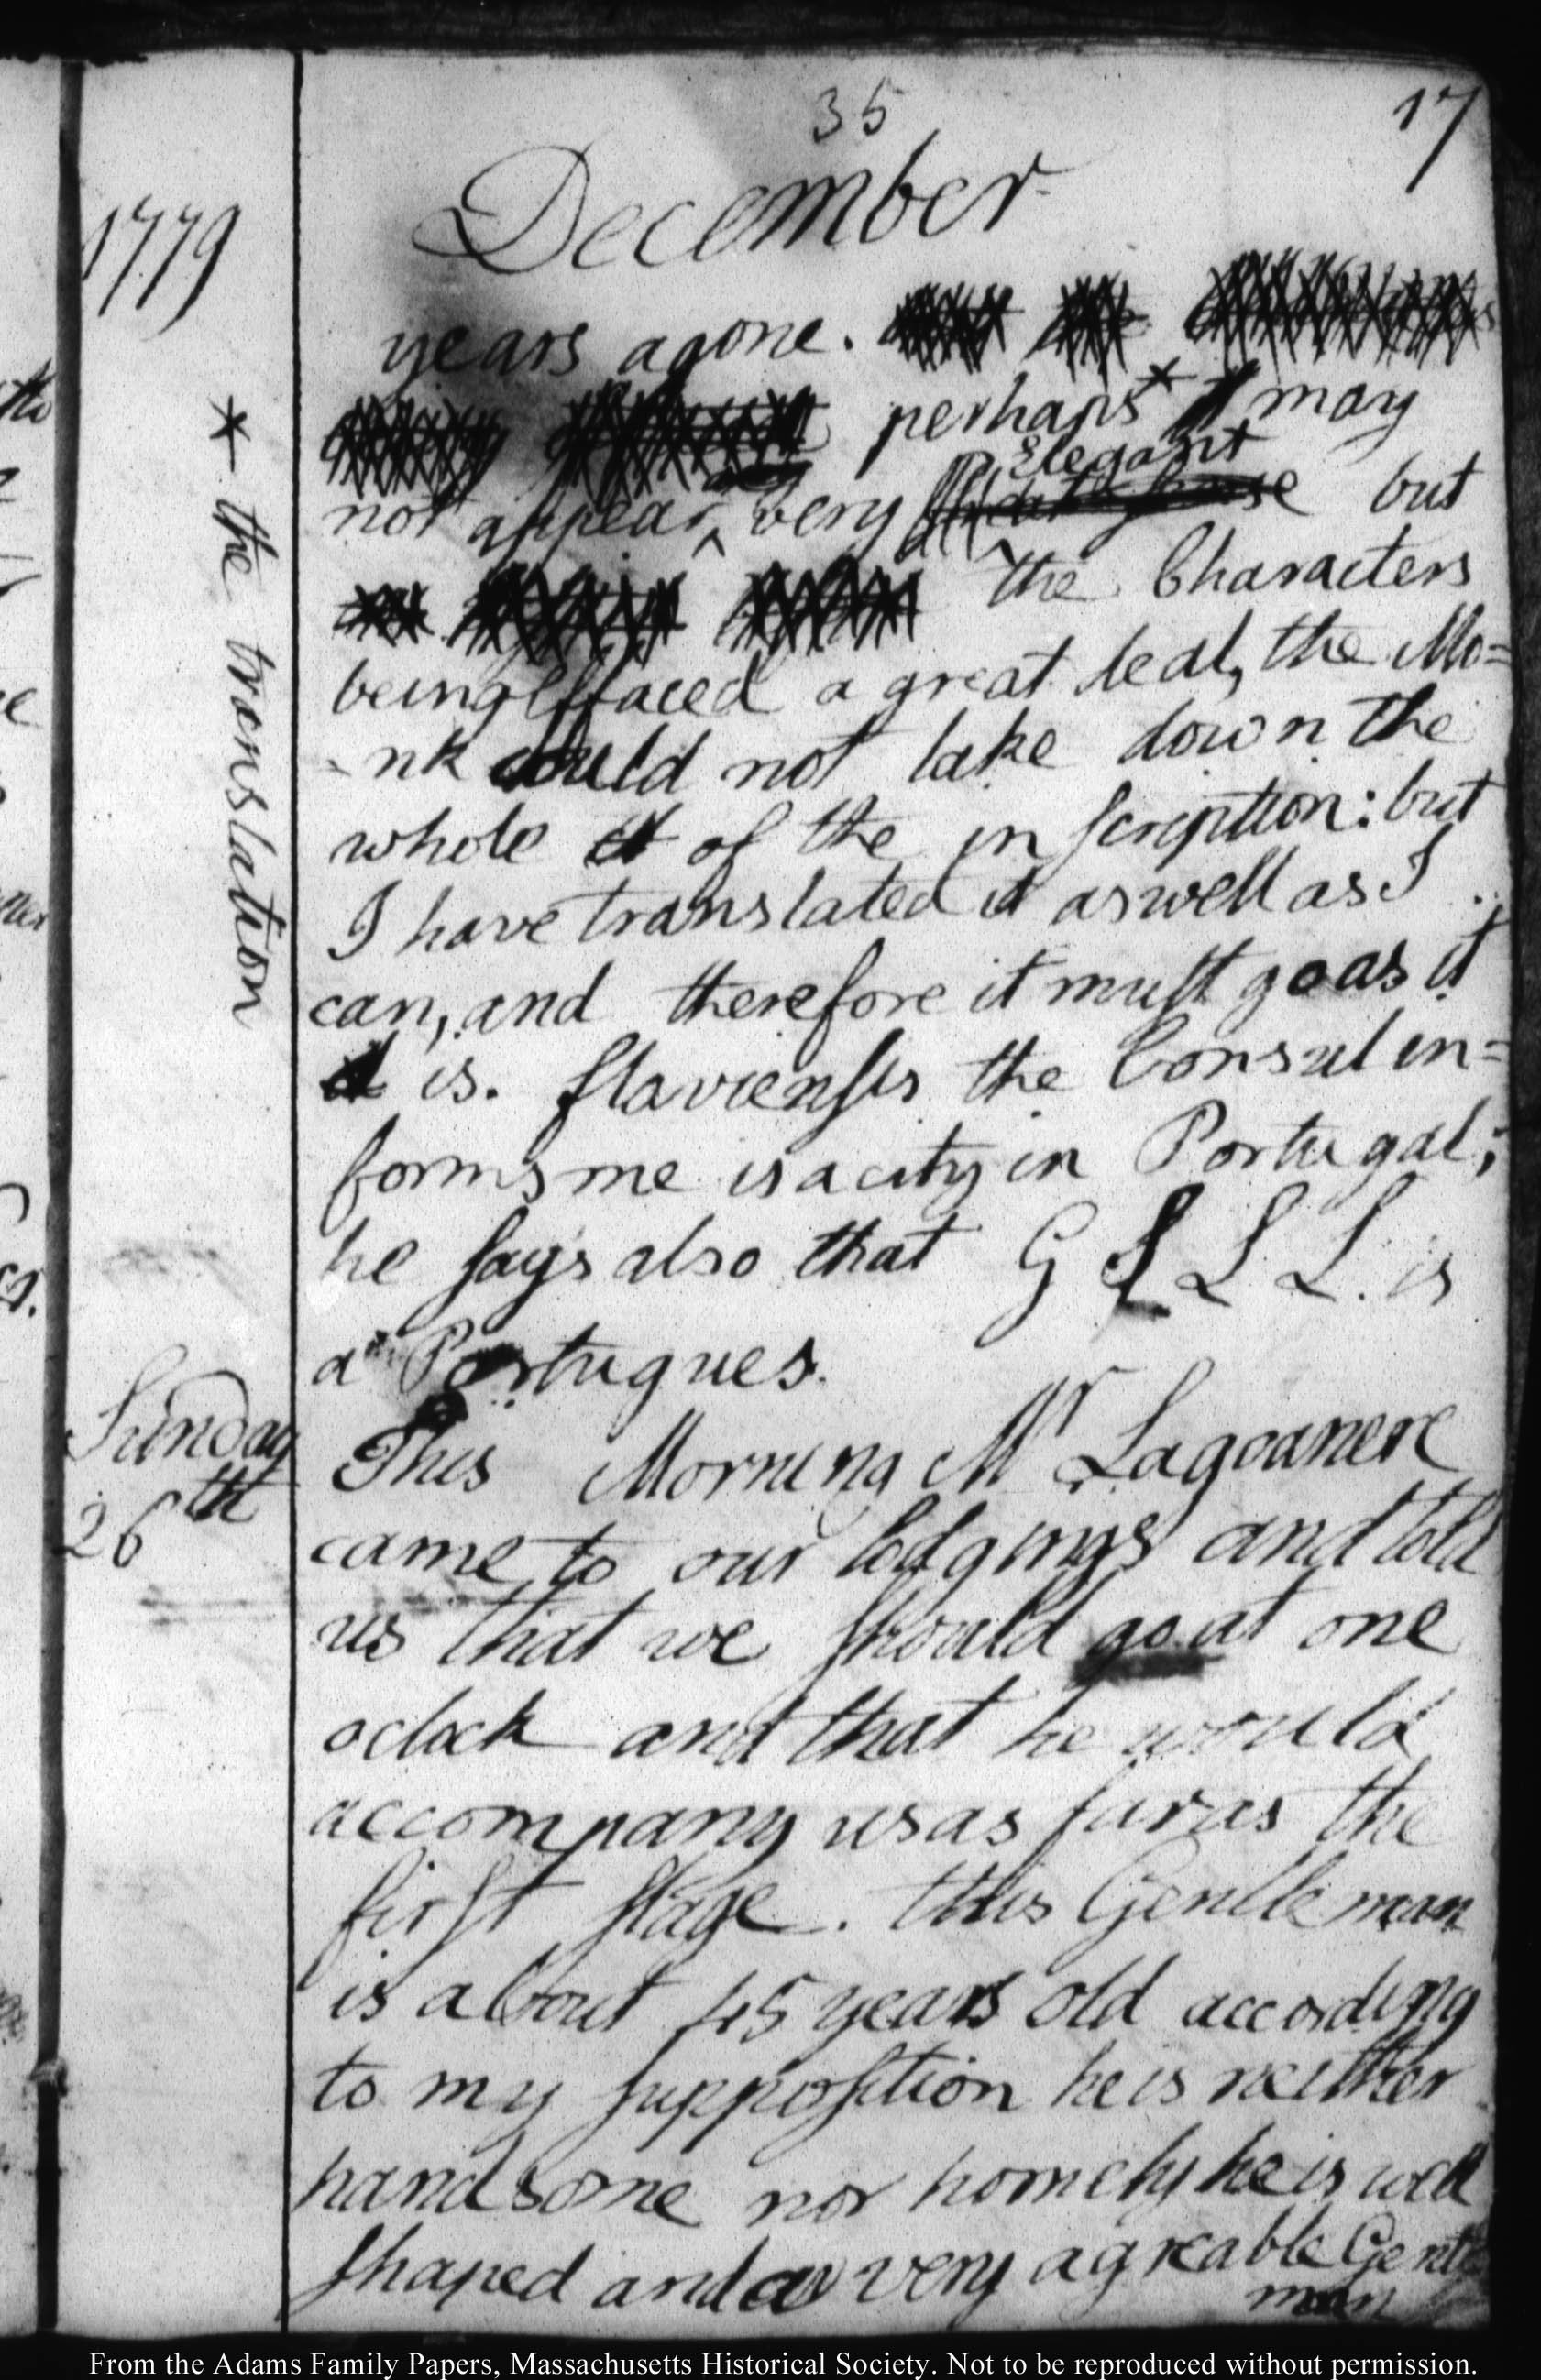 35
17
December
1779
years agone.
perhaps * it may
not appear ^ very Elegant but
the Characters
being effaced a great deal, the Mo=
-nk could not take down the
whole it of the inscription: but
I have translated it as well as I
can, and therefore it must go as it
is. flaviensis the Consul in=
forms me is a city in Portugal;
he says also that G L L L. is
a Portugues.
* the translation
Sunday
26th
This Morning Mr Lagoanere
came to our lodgings and told
us that we should go at one
oclock and that he would
accompany us as far as the
first stage. this Gentleman
is about 45 years old according
to my supposition he is neither
handsome nor homely he is well
shaped and a very agreable Gentle
man
From the Adams Family Papers, Massachusetts Historical Society. Not to be reproduced without permission.